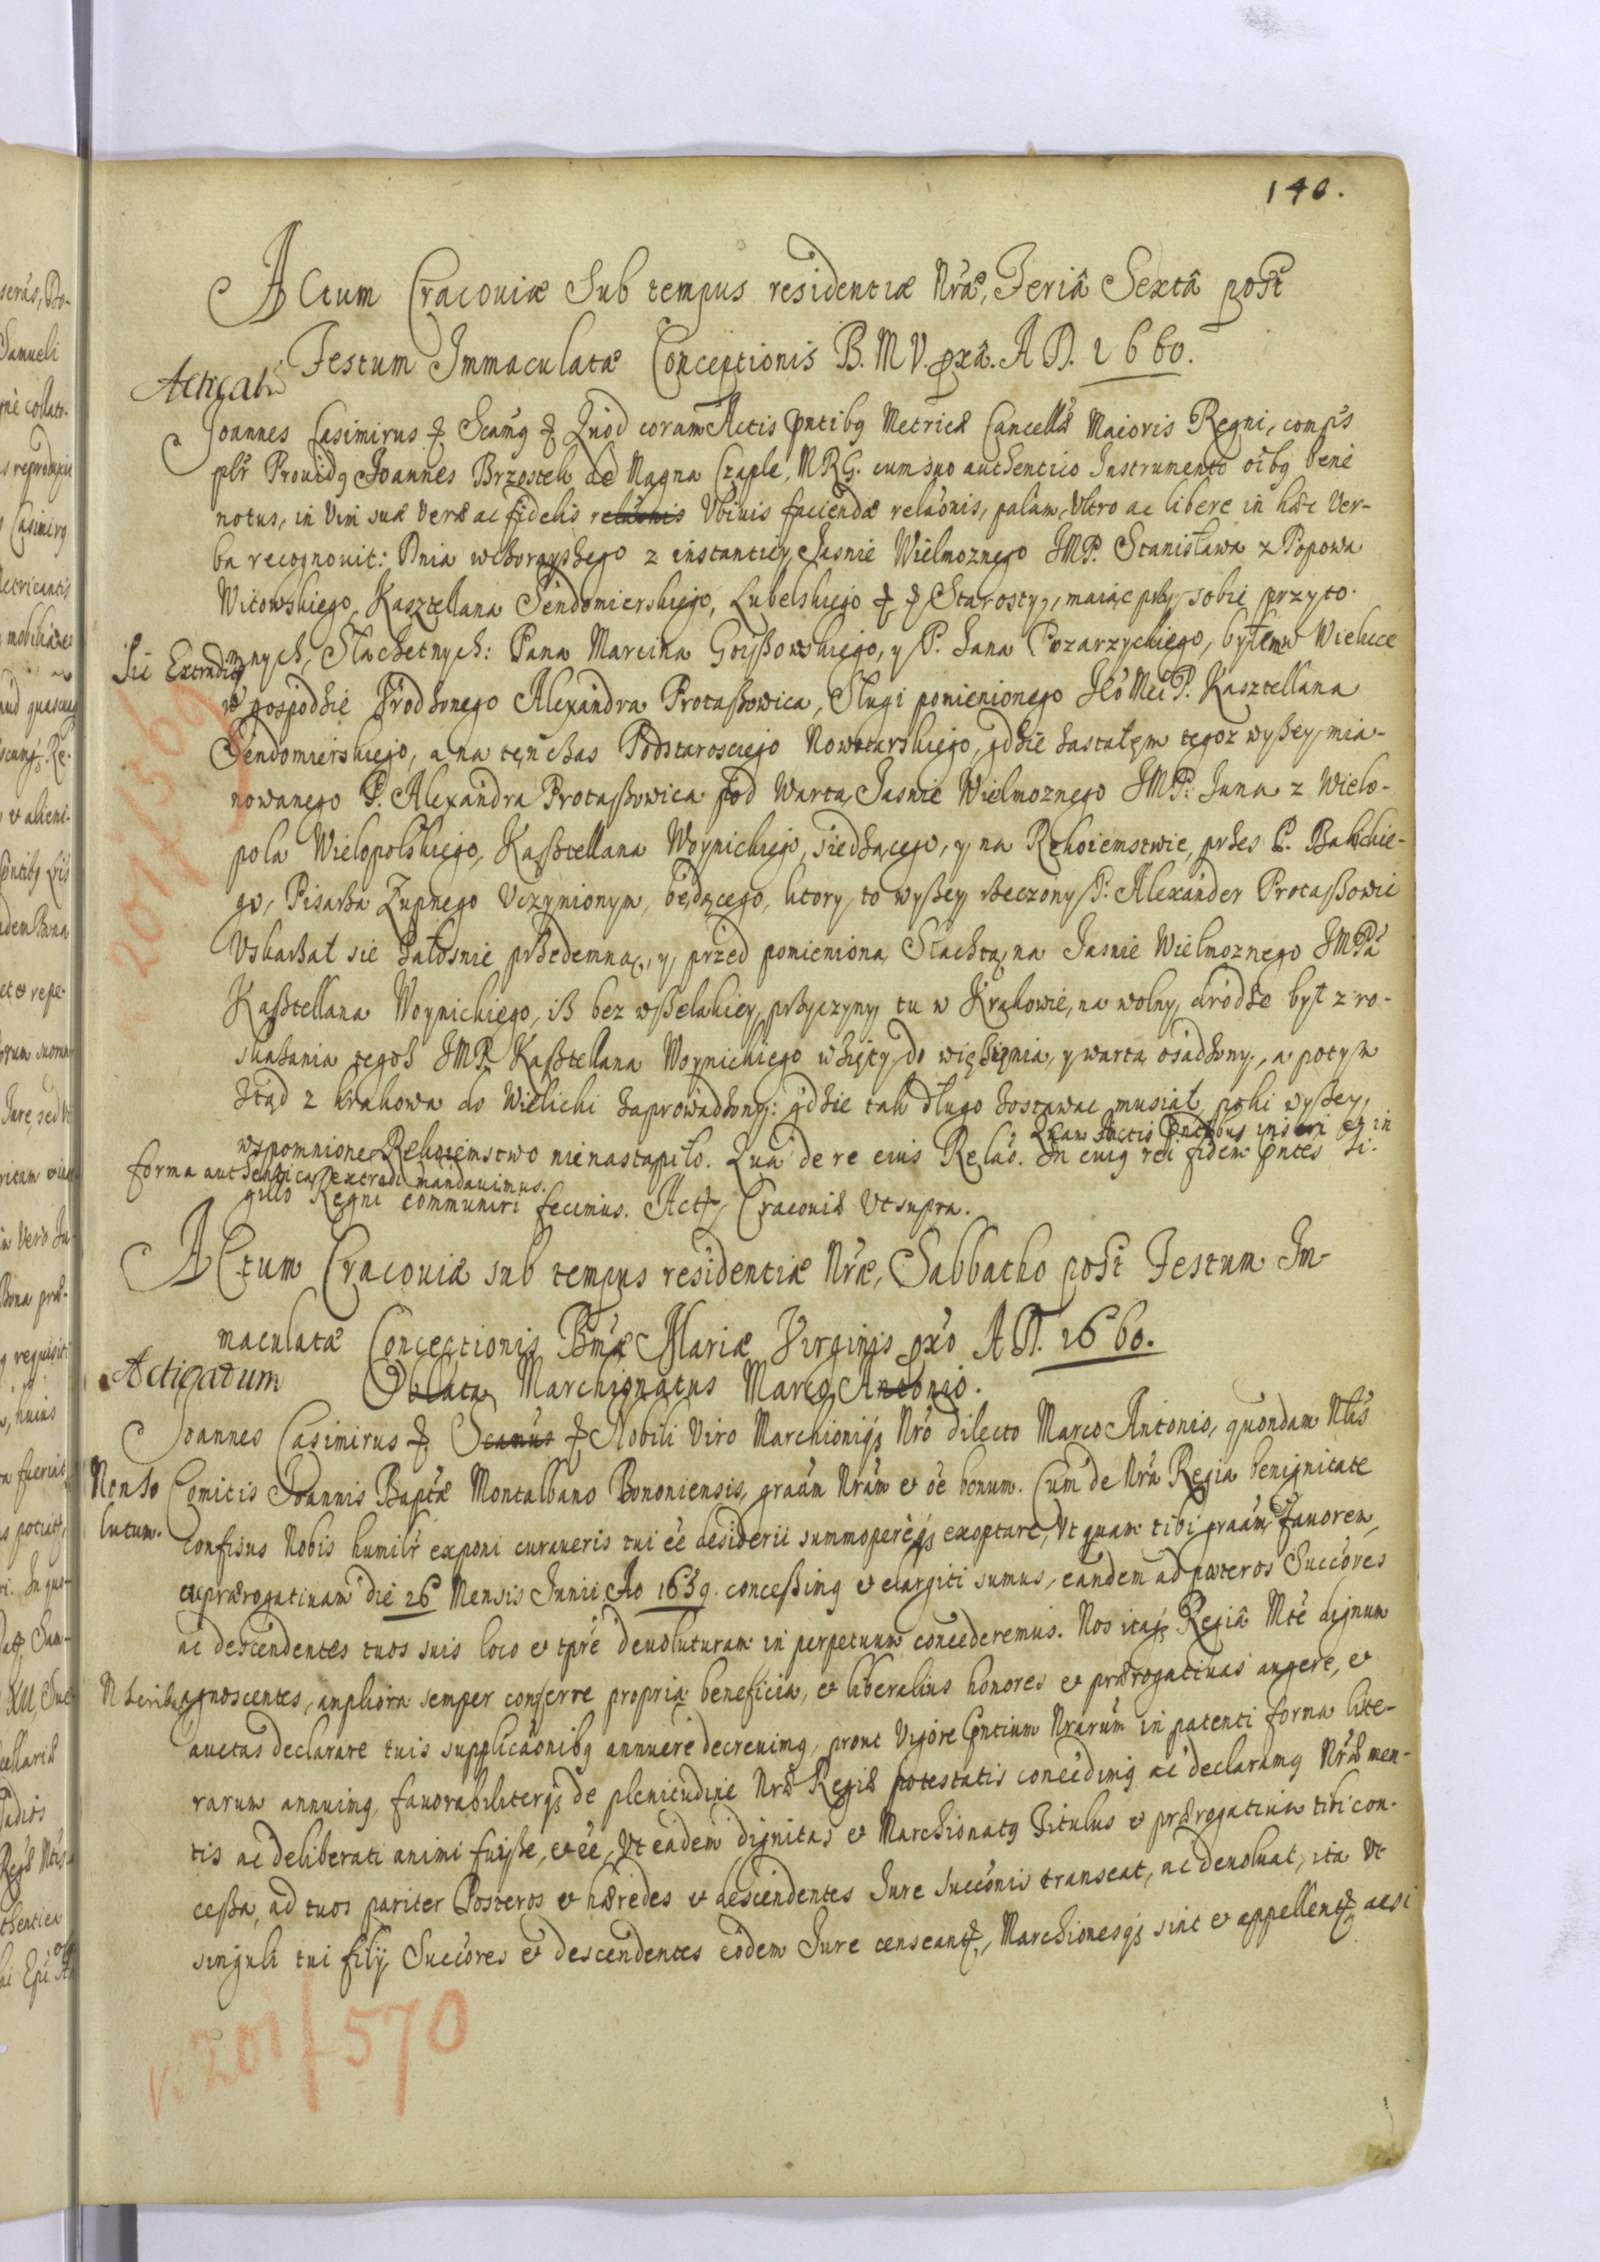 140.
Actum Cracoviæ Sub tempus residentiæ Nræ, Feriâ Sextâ post
Festum Immaculatæ Conceptionis B. M V. pxâ. A D. 1660.
Acticatio
Joannes Casimirus & Scamq & Quod coram Actis pntibq Metricæ Cancellæ Maioris Regni, compis
plr Providq Joannes Brzostek de Magna Czaple, M R G. cum suo authentico Instrumento oibq bene
notus, in vim suæ veræ ac fidelis relaonis Ubivis faciendæ relaonis, palam, Ultro ac libere in hæc Ver-
ba recognovit: Dnia wczorayszego z instantiey Jasnie Wielmoznego JMP. Stanisława z Popowa
Witowskiego, Kasztellana Sendomierskiego, Lubelskiego & & Starosty, maiąc przy sobie przyto-
Sic Extraditq
mnych, Slachetnych: Pana Marcina Goyßowskiego, y P. Jana Pozarzyckiego, byłem w Wielicce
w gospodzie Vrodzonego Alexandra Protaßowica, Sługi pomienionego Jeo Mci P. Kasztellana
Sendomierskiego, a na tęn czas Podstarosciego Nowotarskiego, gdzie zastałęm tegoz wyßey mia-
nowanego P. Alexandra Protaßowica pod Warta, Jasnie Wielmoznego JMP. Jana z Wielo-
pola Wielopolskiego, Kaßtellana Woynickiego, siedzącego, y na Rękoiemstwie, przes P. Bakchie-
go, Pisarza Zupnego Vczynionym, będącego, ktory to wyßey rzeczony P. Alexander Protaßowic
Vskarzał się załosnie przedemną, y przed pomieniona Slachtą, na Jasnie Wielmoznego JMPa
Kaßtellana Woynickiego, iß bez wßelakiey przyczyny tu w Krakowie, na wolny drodze był z ro-
skazania tegoz JMP. Kaßtellana Woynickiego wzięty, do więzięnia, y warta osadzony, a potym
ztąd z Krakowa do Wieliczki zaprowadzony: gdzie tak długo zostawac musiał, poki wyßey,
Quam Actis pntibus inseri et in
wspomnione Rękoiemstwo nienastąpiło. Qua de re eius Relao. In cuiq rei fidem pntes Si-
forma authentica extradi mandavimus.
gillo Regni communiri fecimus. Act Cracoviæ Ut supra.
Actum Cracoviæ sub tempus residentiæ Nræ, Sabbatho post Festum Im-
maculatæ Conceptionis Bmæ Mariæ Virginis pxo A D. 1660.
Acticatum
Oblata Marchionatus Marco Antonio.
Joannes Casimirus & Scamus & Nobili Viro Marchioniqs Nro dilecto Marco Antonio, quondam Nblis
Non so
Comitis Joannis Baptæ Montalbano Bononiensis, graam Nram et oe bonum. Cum de Nra Regia benignitate
lutum.
confisus Nobis humilr exponi curaveris tui ee desiderii summopereqs exoptare, Ut quam tibi graam, Favorem,
et prærogativam die 26 Mensis Junii Ao 1659. conceßimq et elargiti sumus, eandem ad posteros Succores
ac descendentes tuos suis loco et tpre devoluturam in perpetuum concederemus. Nos itaqs Regiâ Mte dignum
agnoscentes, ampliora semper conferre propria beneficia, et liberalius honores et prærogativas augere, et
auctas declarare tuis supplicaonibq annuere decrevimq, prout Vigore pntium Nrarum in patenti forma lite-
rarum annuimq, favorabiliterqs de plenitudine Nræ Regiæ potestatis concedimq ac declaramq Nræ men-
tis ac deliberati animi fuiße, et ee, Ut eadem dignitas et Marchionatq Titulus et prærogativa tibi con-
ceßa, ad tuos pariter Posteros et hæredes et descendentes Jure Succonis transeat, ac devoluat, ita Ut
singuli tui filij, Succores et descendentes eodem Jure censeant, Marchionesqs sint et appellent acsi
v. 201 f 570